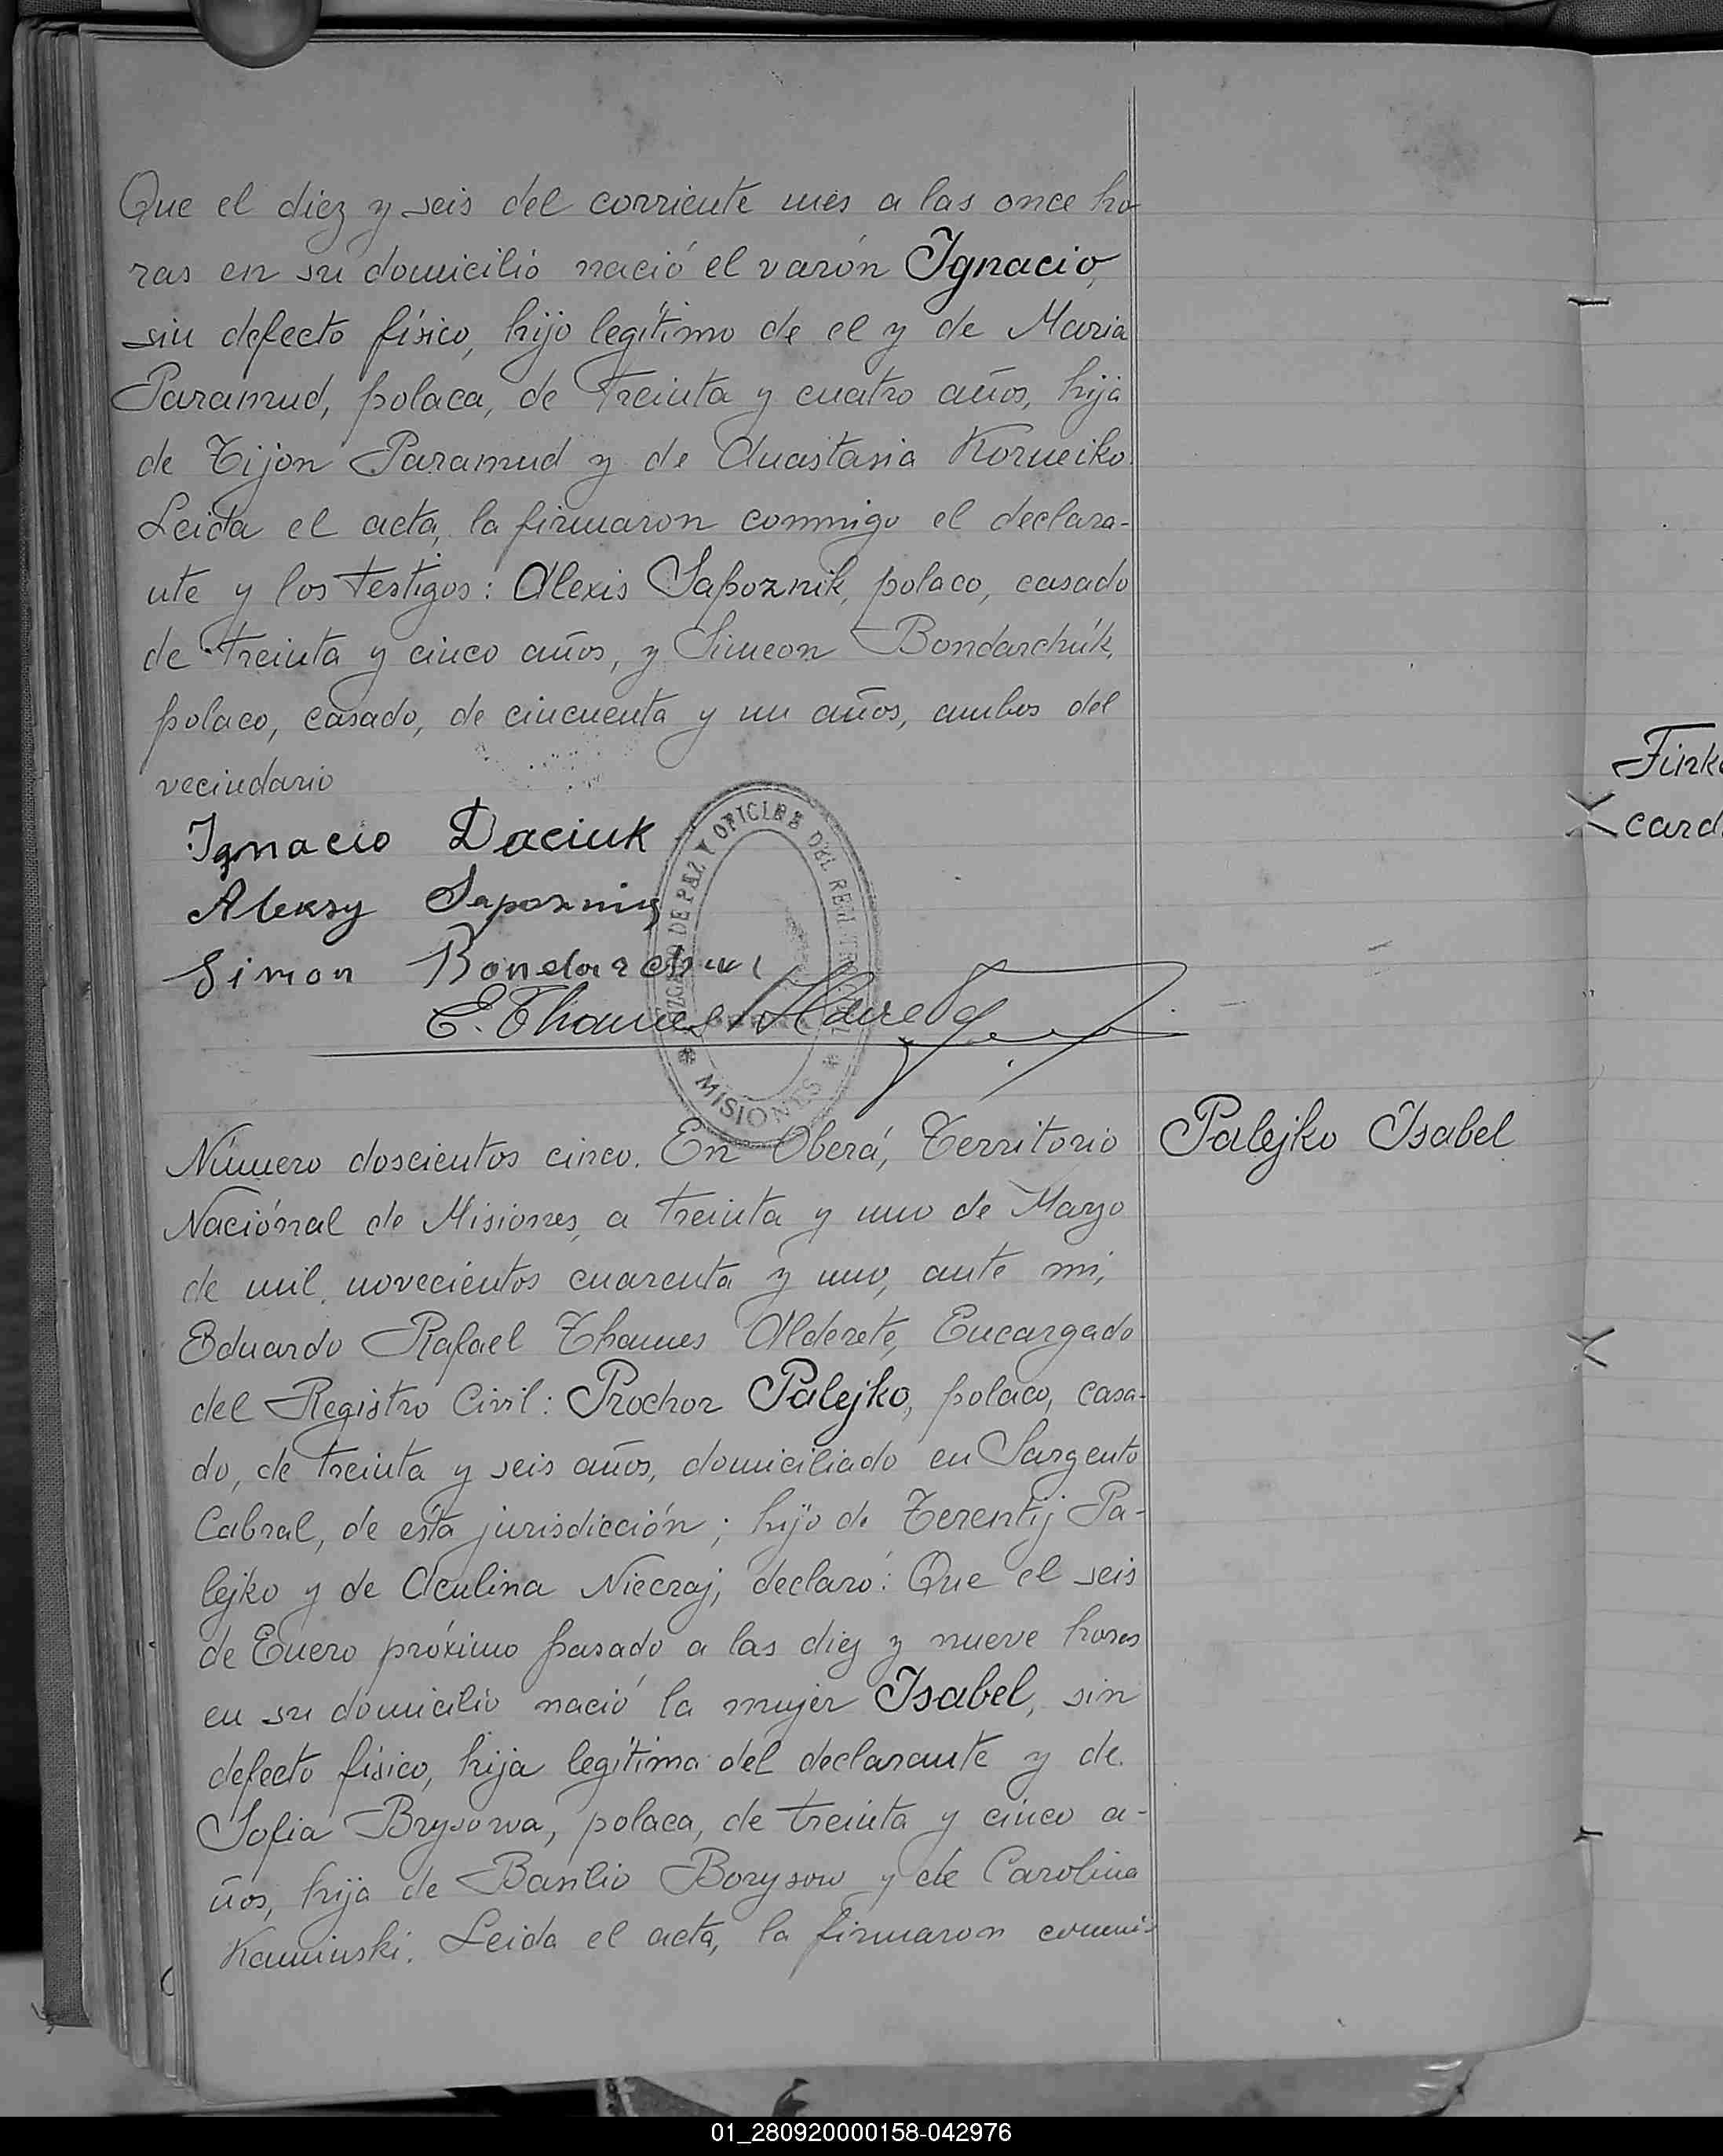 Que el diez y seis del corriente mes a las once ho
ras en su domicilio nació el varón Ignacio,
sin defecto físico, hijo legítimo de el y de Maria
Paramud, polaca, de treinta y cuatro años, hija
de Tijon Paramud y de Anastasia Korneiko.
Leida el acta, la firmaron conmigo el declara-
nte y los testigos: Alexis Sapoznik, polaco, casado
de treinta y cinco años, y Simeon Bondarchuk,
polaco, casado, de cincuenta y un años, ambos del
vecindario
Ignacio Daciuk
Aleksy
Simon
E. Thames Alderete
JUZGADO DE PAZ Y OFICINA DEL REGISTRO CIVIL
* MISIONES *
Número doscientos cinco. En Oberá, Territorio
Palejko Isabel
Naciónal de Misiones, a treinta y uno de Marzo
de mil novecientos cuarenta y uno, ante mi,
Eduardo Rafael Thames Alderete, Encargado
del Registro Civil: Prochor Palejko, polaco, casa-
do, de treinta y seis años, domiciliado en Sargento
Cabral, de esta jurisdicción; hijo de Terentij Pa-
lejko y de Aculina Niecraj, declaró: Que el seis
de Enero próximo pasado a las diez y nueve horas
en su domicilio nació la mujer Isabel, sin
defecto físico, hija legítima del declarante y de
Sofia Brysowa, polaca, de treinta y cinco a-
ños, hija de Basilio Borysow y de Carolina
Kaminski. Leida el acta, la firmaron conmi-
01_280920000158-042976